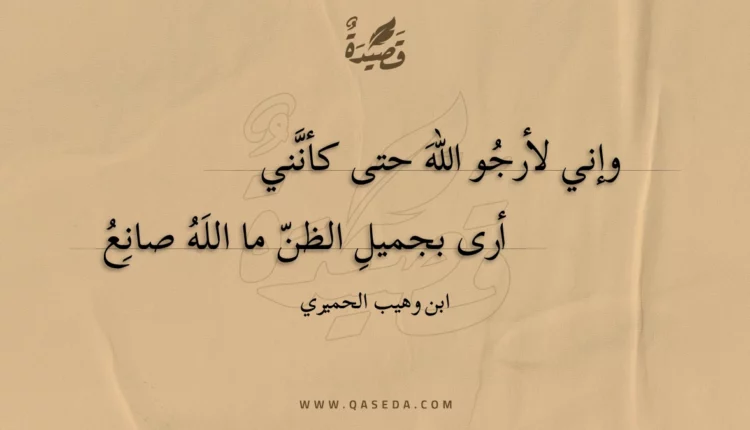 قَصِيْدَةٌ
وإني لأرجُو اللهَ حتى كأنَّني
أرى بجميلِ الظنّ ما اللَهُ صانِعُ
ابن وهيب الحميري
WWW.QASEDA.COM